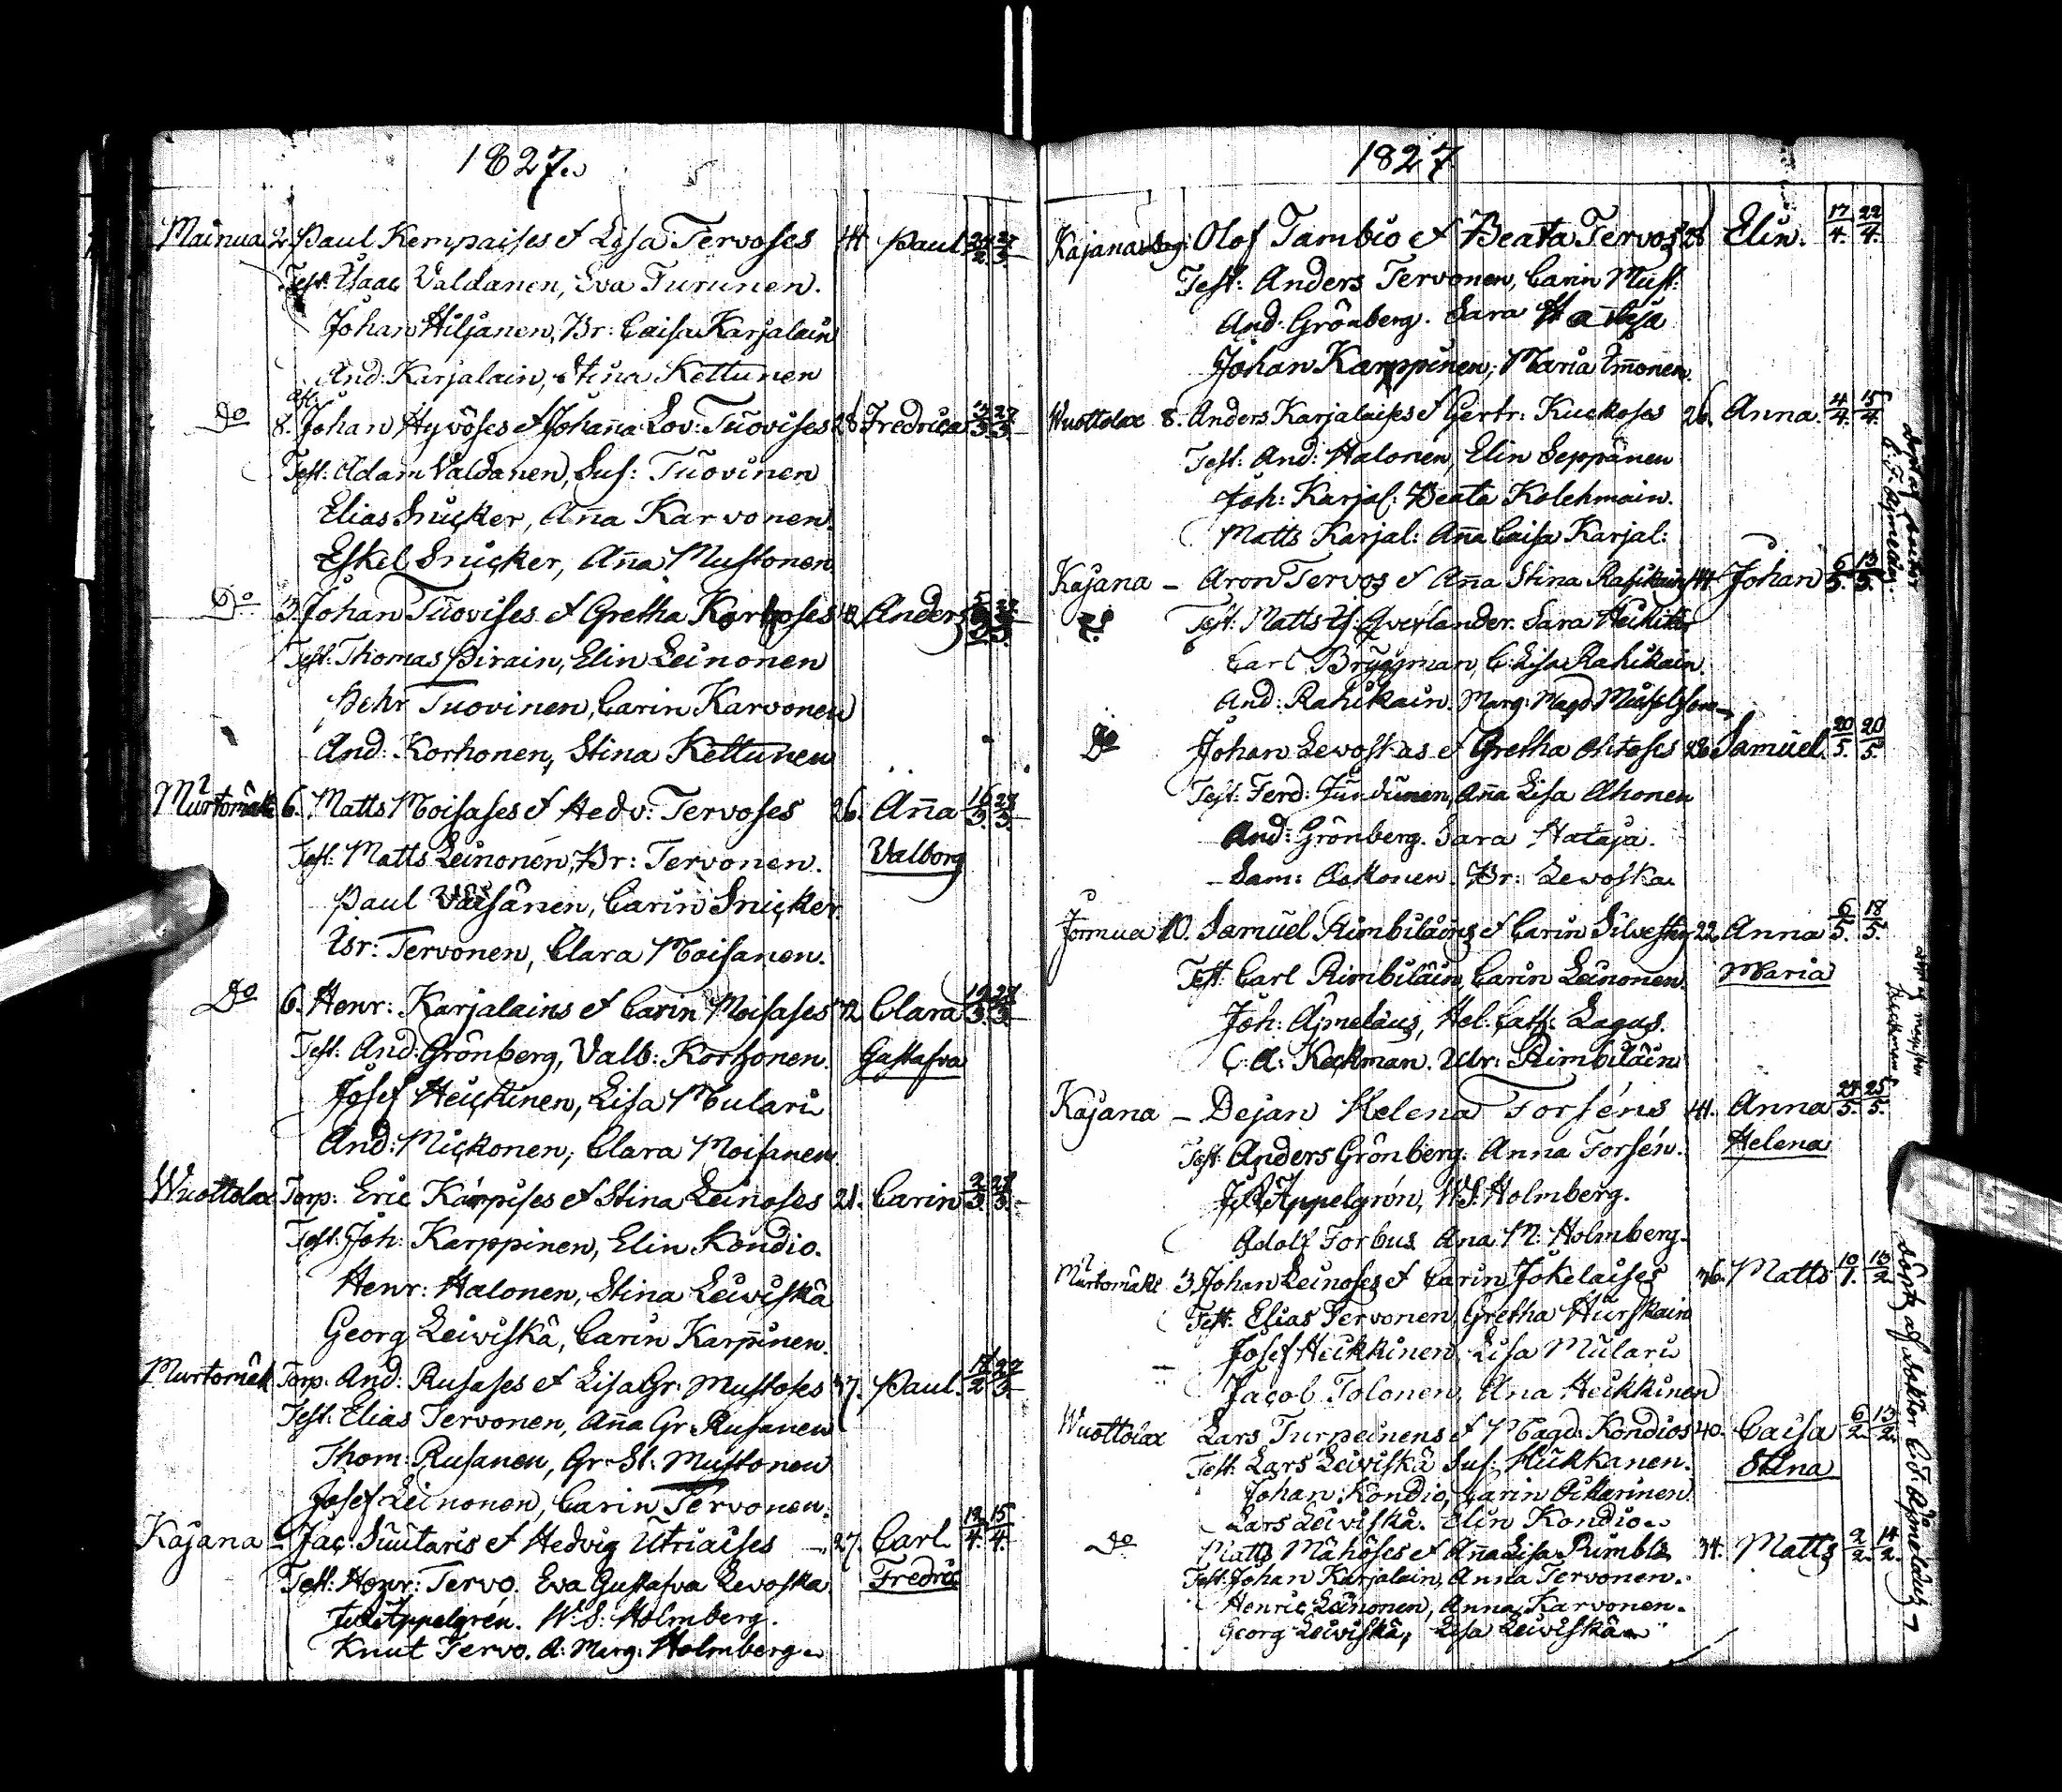 1827.
Mainua 2. Paul Kempaises et Lisa Tervoses 44. Paul 24/2. 27/3.
Test: Isaac Valdanen, Eva Turunen.
Johan Hiljanen, Br: Caisa Karjalain
And: Karjalain, Stina Kettunen
Do 8. Johan Hyvöses et Johanna Lov: Tuovises 28 Fredrica 27/3.
Test: Adam Valdanen, Sus: Tuovinen
Elias Snicker, Anna Karvonen.
Eskel Snicker, Anna Mustonen.
Do 3. Johan Tuovises et Gretha Korhoses 42 Anders
Test: Thomas Pirain, Elin Leinonen
Pehr Tuovinen, Carin Karvonen
And: Korhonen, Stina Kettunen
Murtomäk 6. Matts Moisases et Hedv: Tervoses 26. Anna 16/3. 28/3.
Test: Matts Leinonen, Br: Tervonen. Valborg
Paul Väisänen, Carin Snicker
Isr: Tervonen, Clara Moisanen.
Do 6. Henr: Karjalains et Carin Moisases 42 Clara 19/3. 28/3.
Test: And: Grönberg, Valb: Korhonen. Gustafva
Josef Heickinen, Lisa Mulari
And: Mickonen, Clara Moisanen.
Wuottolax Torp: Eric Karpises et Stina Leinoses 21. Carin 2/3. 28/3.
Test: Joh: Karppinen, Elin Kondio.
Henr: Halonen, Stina Leiviskä
Georg Leiviskä, Carin Karppinen.
Murtomäk Torp. And: Rusases et Lisa Gr: Mustoses 37. Paul. 18/2
Test: Elias Tervonen, Anna Gr: Rusanen
Thom: Rusanen, Gr. St: Mustonen
Josef Leinonen, Carin Tervonen.
Kajana – Jac: Suutaris et Hedvig Utriaises – 27. Carl 12/4. 15/4.
Test: Henr: Tervo. Eva Gustafva Levoska Fredric
Appelgrén. W. S: Holmberg.
Knut Tervo. A: Marg: Holmberg.
1827
Kajana Olof Tambio et Beata Tervos 28 Elin. 17/4. 22/4.
Test: Anders Tervonen, Carin Must:
And: Grönberg. Sara Hataja
Johan Karppinen, Maria Immonen.
Wuottolax 8. Anders Karjalaises et Gertr: Kuckoses 26. Anna. 4/4. 15/4.
Test: And: Halonen, Elin Seppänen
Joh: Karjal: Beata Kolehmain.
Matts Karjal: Anna Caisa Karjal:
Kajana – Aron Tervos et Anna Stina Rahikain 44 Johan 6/5. 13/5.
Test: Matts Qverlander. Sara
Carl Bryggman, C: Lisa Rahikain.
And: Rahikain. Marg: Magd:
Do Johan Levoskas et Gretha Ahtoses 28 Samuel. 20/5. 20/5.
Test: Ferd: Junnunen, Anna Lisa Ahonen
And: Grönberg. Sara Hataja.
Sam: Br: Levoska
Jormua 10. Samuel Rimbiläins et Carin Silvesters 22. Anna 6/5. 18/5.
Test: Carl Rimbiläin, Carin Leinonen. Maria
Joh: Ajmelæus, Hel: Cath: Lagus.
C: A: Keckman. Ulr: Rimbiläin
Kajana – Dejan Helena Forséns 41. Anna 24/5. 25/5.
Test: Anders Grönberg. Anna Forsén. Helena
Appelgrén, W. S. Holmberg.
Adolf Forbus. Ana M: Holmberg.
Murtomäki 3. Johan Leinoses et Carin Jokelaises 36. Matts 10/1. 10/2.
Test: Elias Tervonen, Gretha Hurskain
Josef Heikkinen, Lisa Mulari
Jacob Tolonen, Ana Heikkinen
Wuottolax Lars Turpeinens et Magd: Kondios 40. Caisa 6/2. 13/2.
Test: Lars Leiviskä Sus: Hukkanen. Stina
Johan Kondio, Carin
Lars Leiviskä. Elin Kondio.
Do Matts Mähöses et Anna Lisa Rimbil: 34. Matts 2/2. 14/2.
Test: Johan Karjalain, Anna Tervonen.
Henric Leinonen, Anna Karvonen.
Georg Leiviskä, Lisa Leiviskä
Döpt af Doktor C. F. Ajmelæus